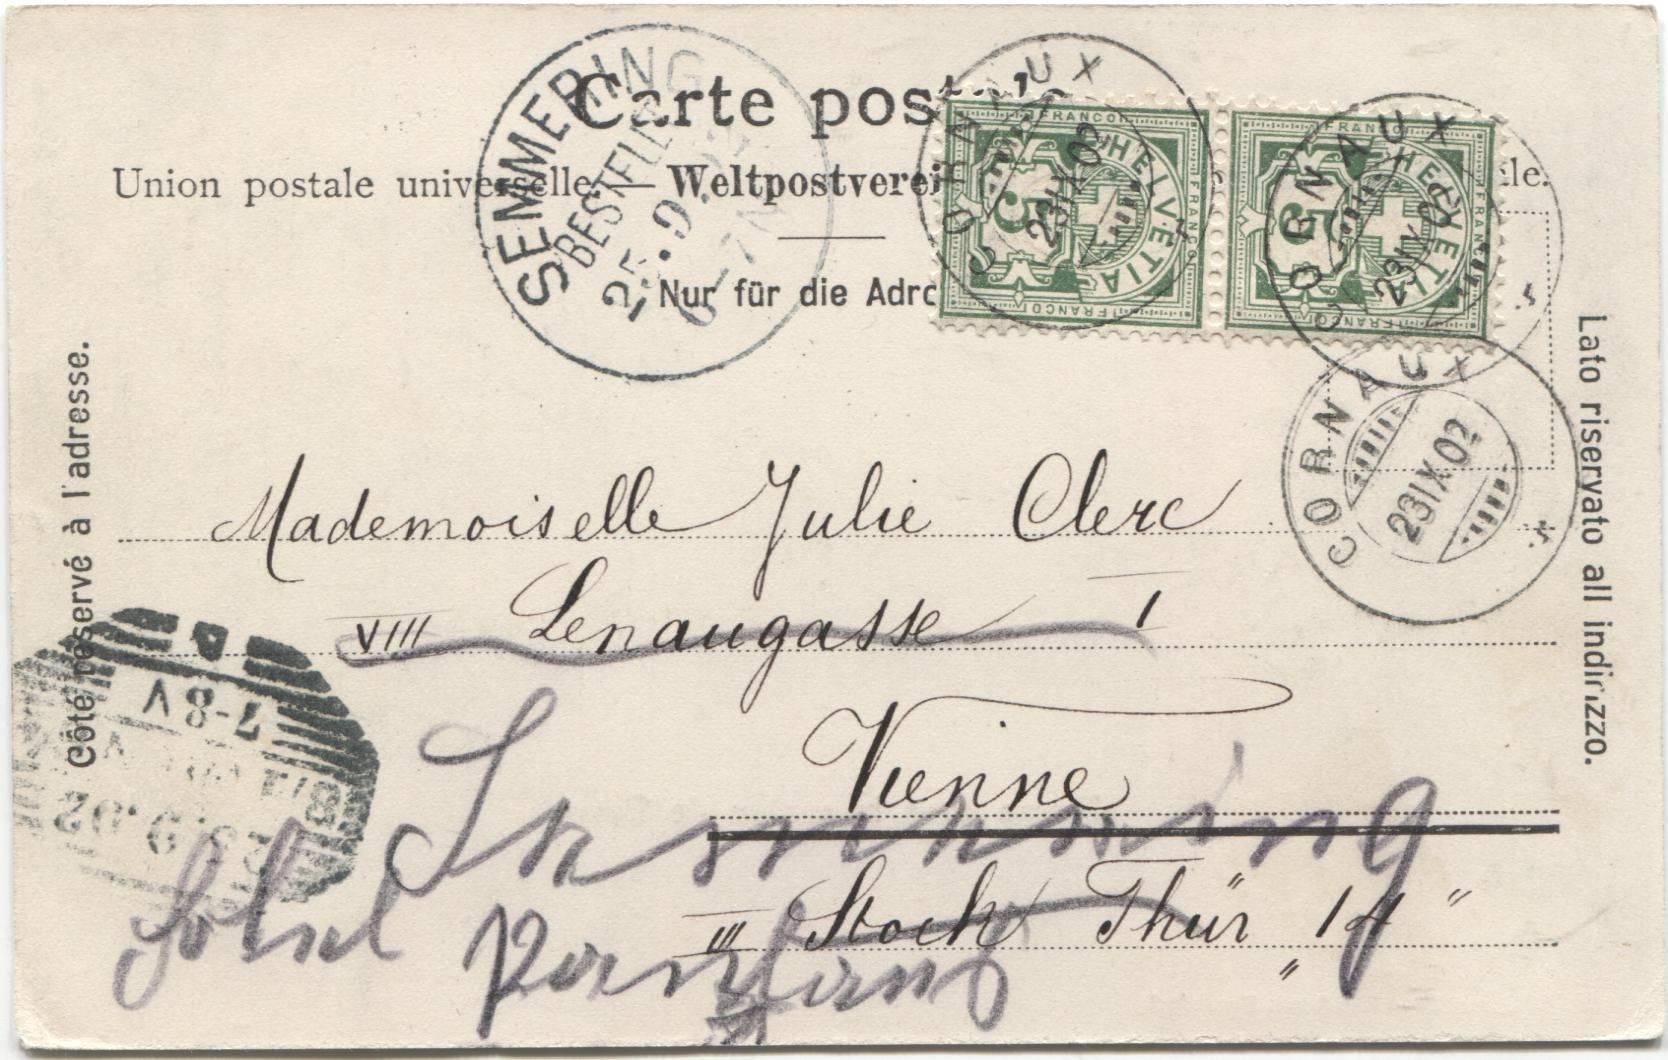 Carte postale
Union postale universelle. — Weltpostverei
le.
Nur für die Adre
Côté réservé à l'adresse.
Lato riservato all indirizzo.
SEMMERING
BESTELLT
25.9.02
6-7N
CORNAUX
23 IX 02
FRANCO
HELVETIA
5
CORNAUX
23 IX 02
FRANCO
HELVETIA
5
CORNAUX
23 IX 02
Mademoiselle Julie Clerc
VIII Lenaugasse 1
Vienne
III Stock Thür "14"
Semmering
Hotel
7-8V
9.02